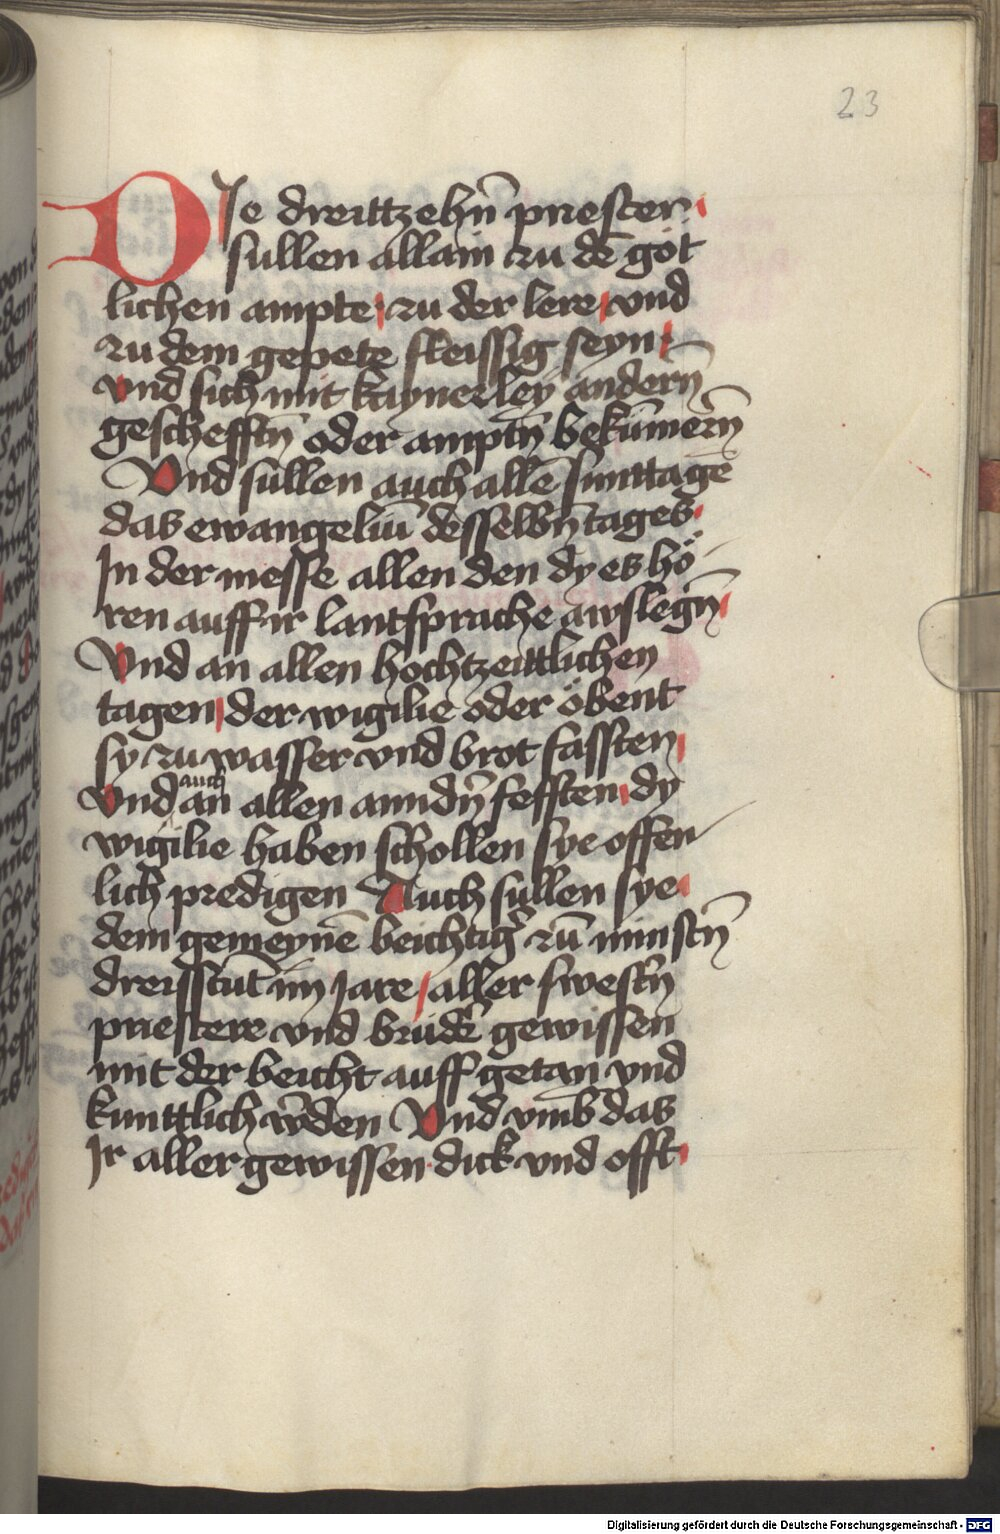 23
DIe dreittzehn̄ priester
sullen allain zu dē göt
lichen ampte zu der lere vnd
zu dem gepete fleissig seyn
vnd sich mit kaynerley andern̄
geschefftn̄ oder amptn̄ bekūmern̄
Vnd sullen auch allē sunttagē
das ewangeliū desselbn̄ tages
In der messe allen den dy es hö
ren auff ir lantsprache awslegn̄
Vnd an allen hochtzeittlichen
tagen der wigilie oder öbent
sy zu wasser vnd brot fassten
Vnd auch an allen anndn̄ fessten dy
wigilie haben schollen sye offen
lich predigen Auch sullen sye
dem gemeynē beichtiḡ zū minstn̄
dreisstūt im Jare aller swestn̄
priestere vnd brüdē gewissen
mit der beicht auff getan vnd
kunttlich w̄den Vnd vmb das
Ir aller gewissen dick vnd offt
Digitalisierung gefördert durch die Deutsche Forschungsgemeinschaft - DFG